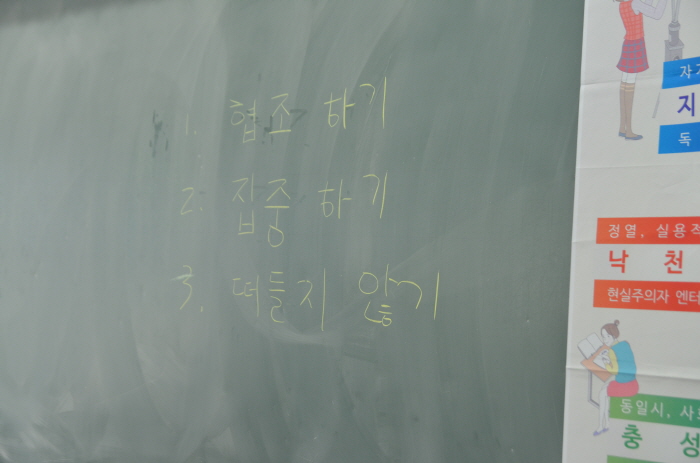 1. 협조 하기
2. 집중 하기
3. 떠들지 않기
지
독
정열, 실용적
낙 천
현실주의자 엔터
동일시, 사
충 성